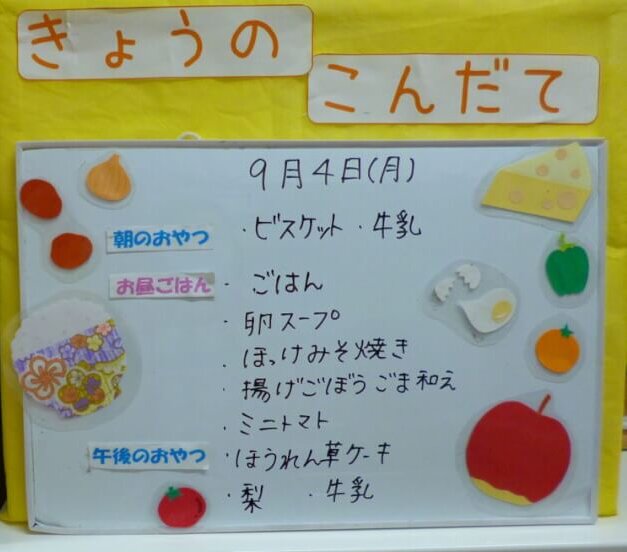 きょうの
こんだて
9月4日(月)
朝のおやつ ・ビスケット ・牛乳
お昼ごはん ・ごはん
・卵スープ
・ほっけみそ焼き
・揚げごぼうごま和え
・ミニトマト
午後のおやつ ・ほうれん草ケーキ
・梨 ・牛乳